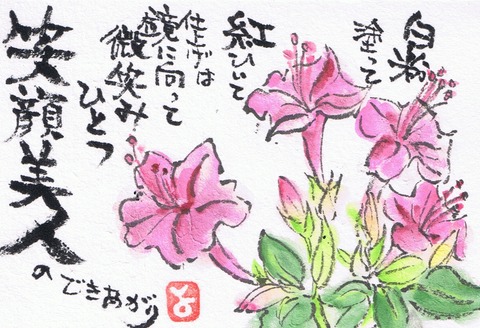 白粉
塗って
紅ひいて
仕上げは
鏡に向って
微笑み
ひとつ
笑顔美人
のできあがり